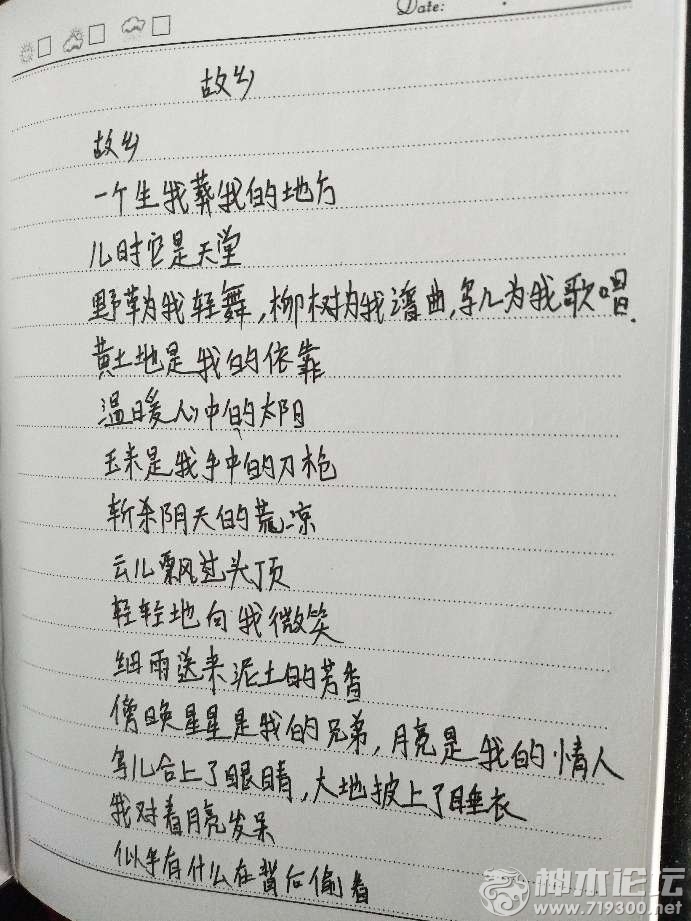 Date:
故乡
故乡
一个生我葬我的地方
儿时它是天堂
野草为我轻舞,柳树为我谱曲,鸟儿为我歌唱.
黄土地是我的依靠
温暖人心中的太阳
玉米是我手中的刀枪
斩杀阴天的荒凉
云儿飘过头顶
轻轻地向我微笑
细雨送来泥土的芳香
傍晚星星是我的兄弟,月亮是我的情人
鸟儿合上了眼睛,大地披上了睡衣
我对着月亮发呆
似乎有什么在背后偷看
神木论坛
www.719300.net